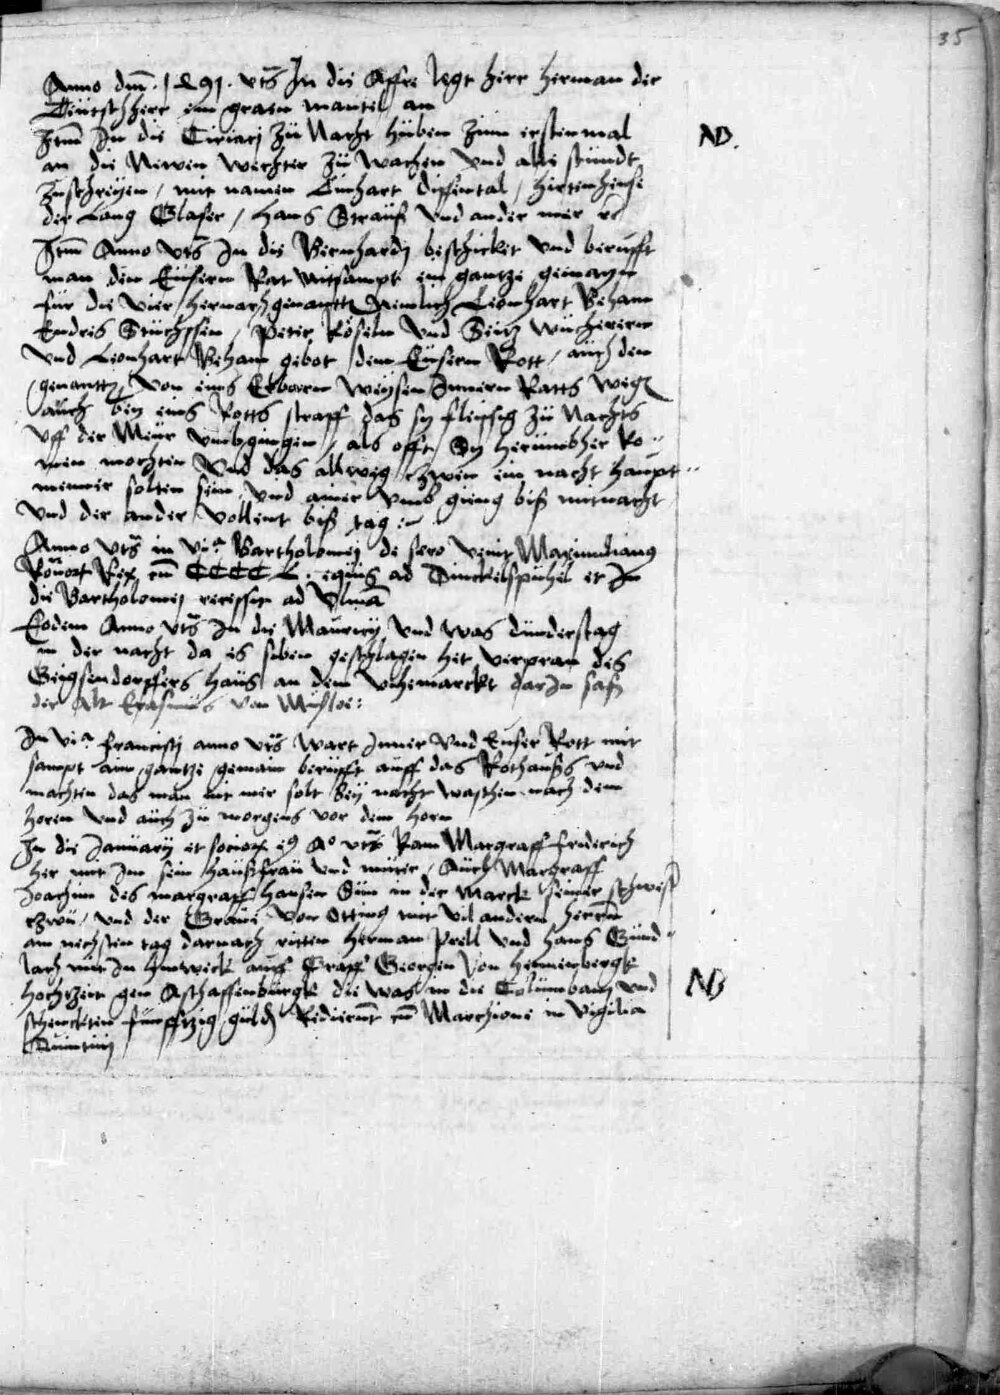 35
Anno dm̄ · 1491 · vts̄ In die Affre legt herr Herman der
Teutschherr ein graen mantel an
Itm̄ In die Ciriacj zu Nacht huben zum ersten mal
an die Newen Wechter zu wachen vnd alle stundt
zuschreyen / mit namen Linhart Diffental / hirtenhense
der Lang Glaser / Hans Strauß vnd ander mer ꝛc
NB.
Itm̄ Anno vts̄ In die Bernhardj beschicket vnd berufft
man den Eusern Rat mitsampt ein gantze gemayn
für die vier hernachgenantt Nemlich Leonhart Beham
Endres / Peter Röseln vnd Seitz Wucherern
vnd Leonhart Beham gebot dem Eusern Rott / auch den
genantt / von eins Erbarn Weysen Innern Ratts weg
auch bey eins Rotts straff das sy fleissig zu Nachts
vff der Meur vmbgiengen / als offt Sy herumbher ko-
men mochten vnd das allweg zwen ein nacht haupt-
menner solten sein vnd ainer vmb gieng biß mitnacht
vnd der ander vollent biß tag :
Anno vts̄ in via Bartholomej de sero venit Maximilianus
Romor Rex cū CCCC L · equis ad Dinckelspuhel et In
die Bartholomej recessit ad Vlmā
Eodem Anno vts̄ In die Mauricij vnd was dunderstag
in der nacht da es siben geschlagen het verpran des
Geigsendorffers haus an dem vihemarckt darin saß
der Alt Erasmus von
In via Francisci anno vts̄ wart Inner vnd Euser Rott mit
sampt ain gantze gemain berufft auff das Rothauß vnd
machten das man nit mer solt bey nacht waschen nach dem
horen vnd auch zu morgens vor dem horn
In die Januarij et socior eꝰ Ao vts̄ kam Margraff Friderich
her mit Im sein haußfrau vnd muter / Auch Margraff
Joachim des margraff Hansen Sun in der Marck seiner schwest
vnd der Graue von Otting mit vil andern herrn
am nechsten tag darnach ritten Herman Prell vnd Hans Gund-
lach mit In hinweck auff Graff Georgen von Hennenbergk
hochzeit gen Aschaffenburgk die was in die Columbani vnd
schenckten funfftzig guld Redierūt cū Marchione in vigilia
Quintinj
NB